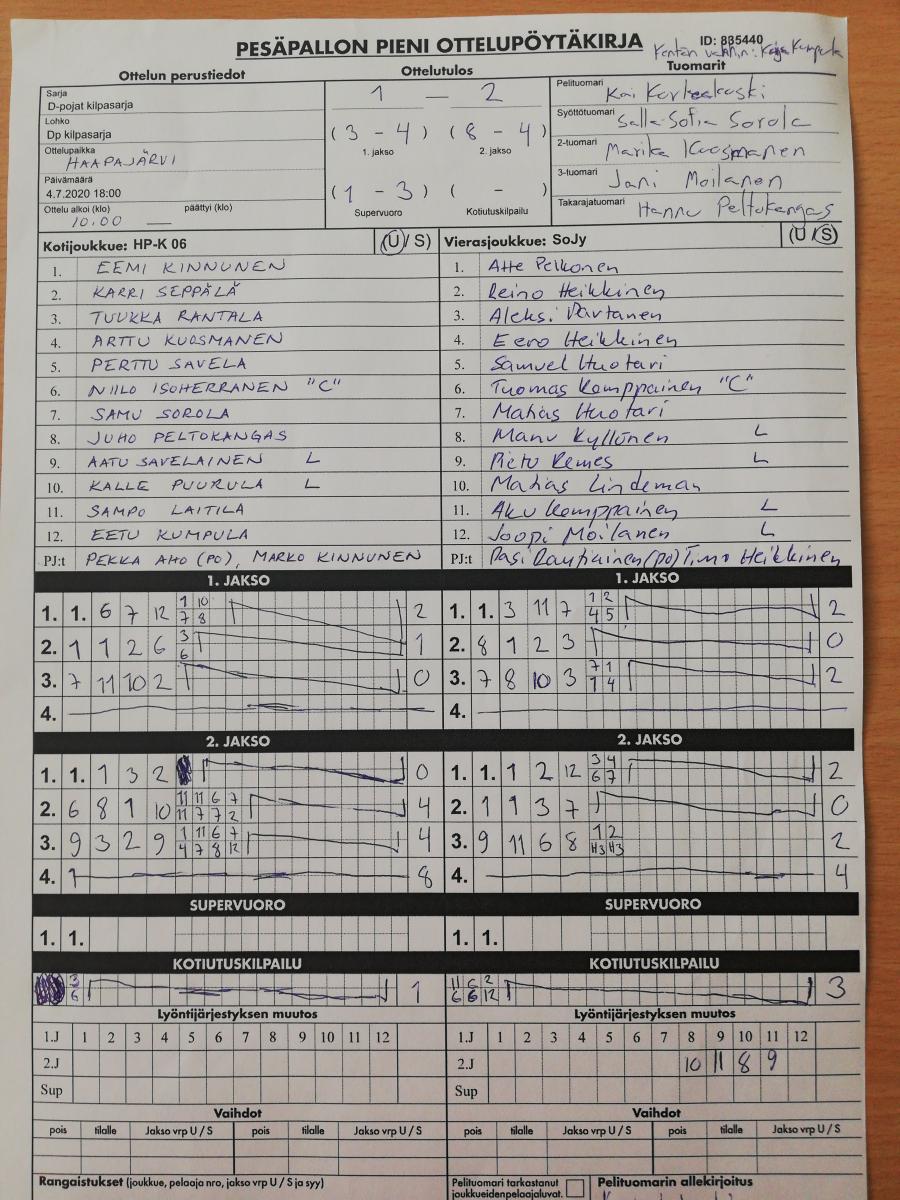 PESÄPALLON PIENI OTTELUPÖYTÄKIRJA
ID: 885440
Kentän vanhin: Kaija Kumpula
Ottelun perustiedot Ottelutulos Tuomarit
Sarja
D-pojat kilpasarja
Lohko
Dp kilpasarja
Ottelupaikka
HAAPAJÄRVI
Päivämäärä
4.7.2020 18:00
Ottelu alkoi (klo) päättyi (klo)
10.00 —
1 — 2
(3 - 4) (8 - 4)
1. jakso 2. jakso
(1 - 3) ( - )
Supervuoro Kotiutuskilpailu
Pelituomari Kai Korkeakoski
Syöttötuomari Salla-Sofia Sorola
2-tuomari Marika Kuosmanen
3-tuomari Jani Moilanen
Takarajatuomari Hannu Peltokangas
Kotijoukkue: HP-K 06 (U / S)
1. EEMI KINNUNEN
2. KARRI SEPPÄLÄ
3. TUUKKA RANTALA
4. ARTTU KUOSMANEN
5. PERTTU SAVELA
6. NIILO ISOHERRANEN "C"
7. SAMU SOROLA
8. JUHO PELTOKANGAS
9. AATU SAVELAINEN L
10. KALLE PUURULA L
11. SAMPO LAITILA
12. EETU KUMPULA
PJ:t PEKKA AHO (PO), MARKO KINNUNEN
Vierasjoukkue: SoJy (U / S)
1. Atte Pelkonen
2. Reino Heikkinen
3. Aleksi Partanen
4. Eero Heikkinen
5. Samuel Huotari
6. Tuomas Komppainen "C"
7. Matias Huotari
8. Manu Kyllönen L
9. Pietu Kemes L
10. Matias Lindeman
11. Aku Komppainen L
12. Joopi Moilanen L
PJ:t Pasi Rautiainen (po) Timo Heikkinen
1. JAKSO
1. 1. 6 7 12 1 10 2
7 8
2. 1 1 2 6 3 1
6
3. 7 11 10 2 0
4.
1. JAKSO
1. 1. 3 11 7 1 2 2
4 5
2. 8 1 2 3 0
3. 7 8 10 3 7 1 2
1 4
4.
2. JAKSO
1. 1. 1 3 2 0
2. 6 8 1 10 11 11 6 7 4
11 7 7 2
3. 9 3 2 9 1 11 6 7 4
4 7 8 12
4. 1 8
2. JAKSO
1. 1. 1 2 12 3 4 2
6 7
2. 1 1 3 7 0
3. 9 11 6 8 1 2 2
H3 H3
4. 4
SUPERVUORO
1. 1.
SUPERVUORO
1. 1.
KOTIUTUSKILPAILU
3 1
6
KOTIUTUSKILPAILU
11 6 2 3
6 6 12
Lyöntijärjestyksen muutos
1.J 1 2 3 4 5 6 7 8 9 10 11 12
2.J
Sup
Lyöntijärjestyksen muutos
1.J 1 2 3 4 5 6 7 8 9 10 11 12
2.J 10 11 8 9
Sup
Vaihdot
pois tilalle Jakso vrp U / S pois tilalle Jakso vrp U / S
Vaihdot
pois tilalle Jakso vrp U / S pois tilalle Jakso vrp U / S
Rangaistukset (joukkue, pelaaja nro, jakso vrp U / S ja syy)
Pelituomari tarkastanut
joukkueidenpelaajaluvat.
Pelituomarin allekirjoitus